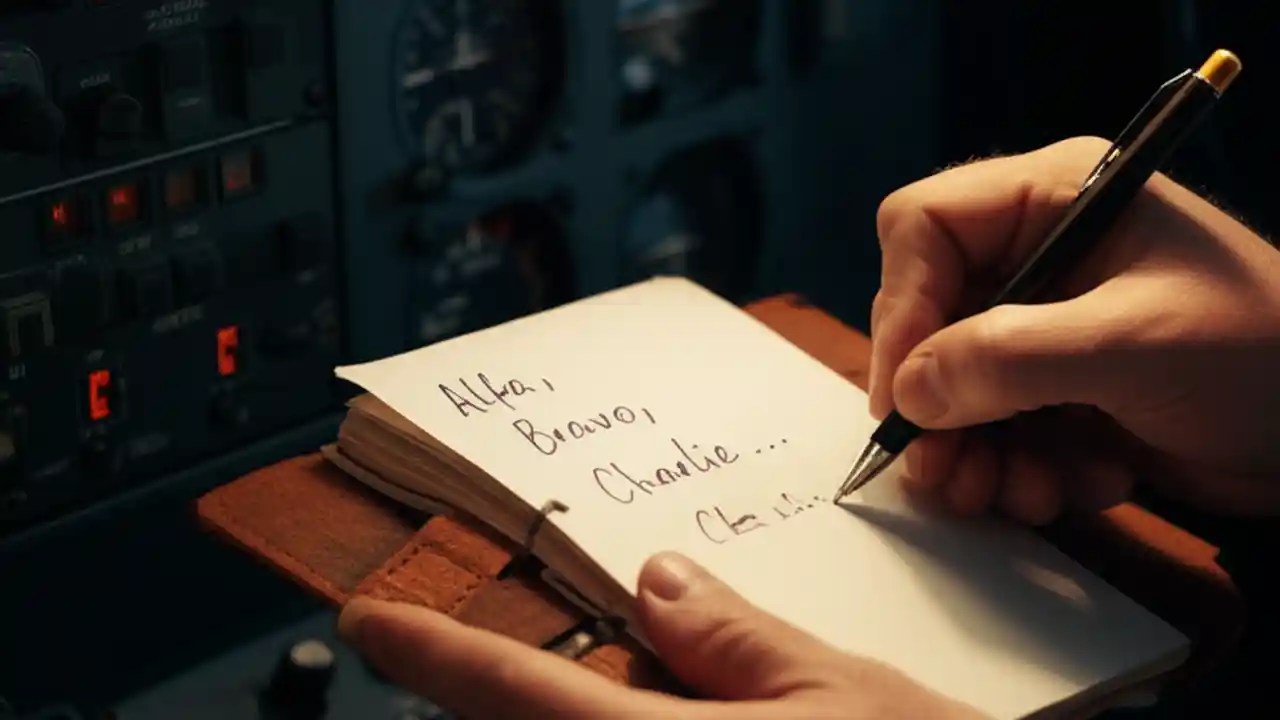 Alfa,
Bravo,
Charlie...